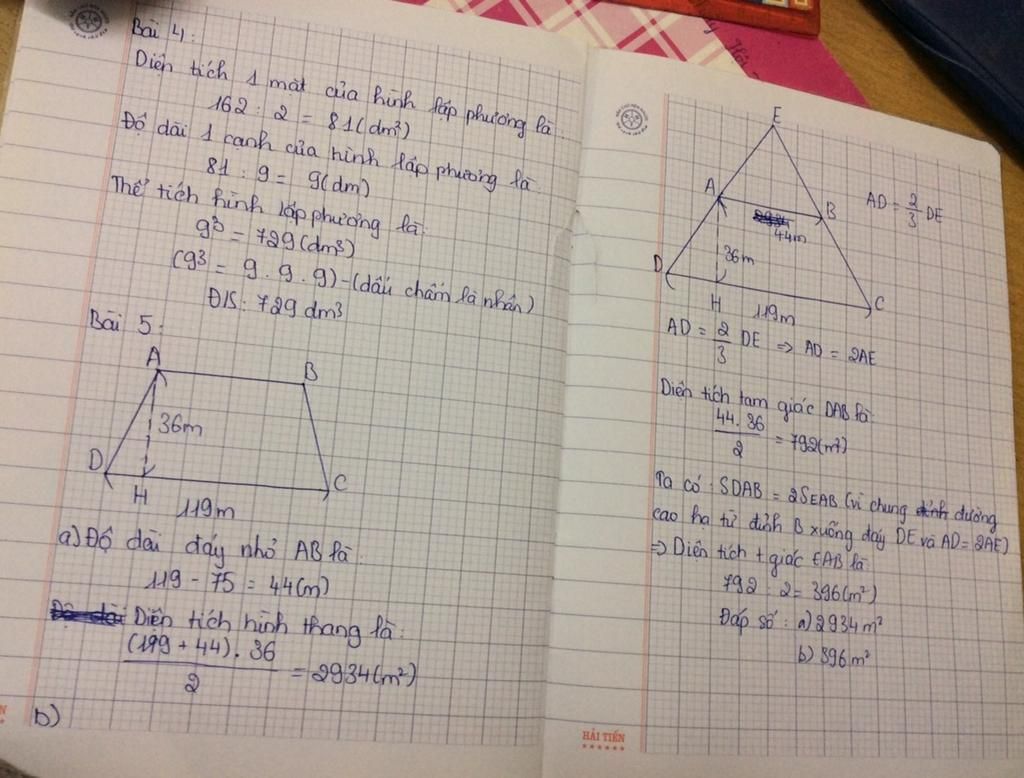 Bài 4:
Diện tích 1 mặt của hình lập phương là:
162 : 2 = 81 (dm²)
Độ dài 1 cạnh của hình lập phương là:
81 : 9 = 9 (dm)
Thể tích hình lập phương là:
9³ = 729 (dm³)
(9³ = 9 . 9 . 9) - (dấu chấm là nhân)
Đ/S: 729 dm³
Bài 5:
A
B
36m
D
H
C
119m
a) Độ dài đáy nhỏ AB là:
119 - 75 = 44 (m)
Diện tích hình thang là:
(119 + 44) . 36
2
= 2934 (m²)
b)
E
A
B
AD = 2/3 DE
44m
36m
D
H
C
119m
AD = 2/3 DE => AD = 2AE
Diện tích tam giác DAB là:
44 . 36
2
= 792 (m²)
Ta có: SDAB = 2SEAB (vì chung đường
cao hạ từ đỉnh B xuống đáy DE và AD = 2AE)
=> Diện tích t.giác EAB là:
792 : 2 = 396 (m²)
Đáp số: a) 2934 m²
b) 396 m²
HẢI TIẾN